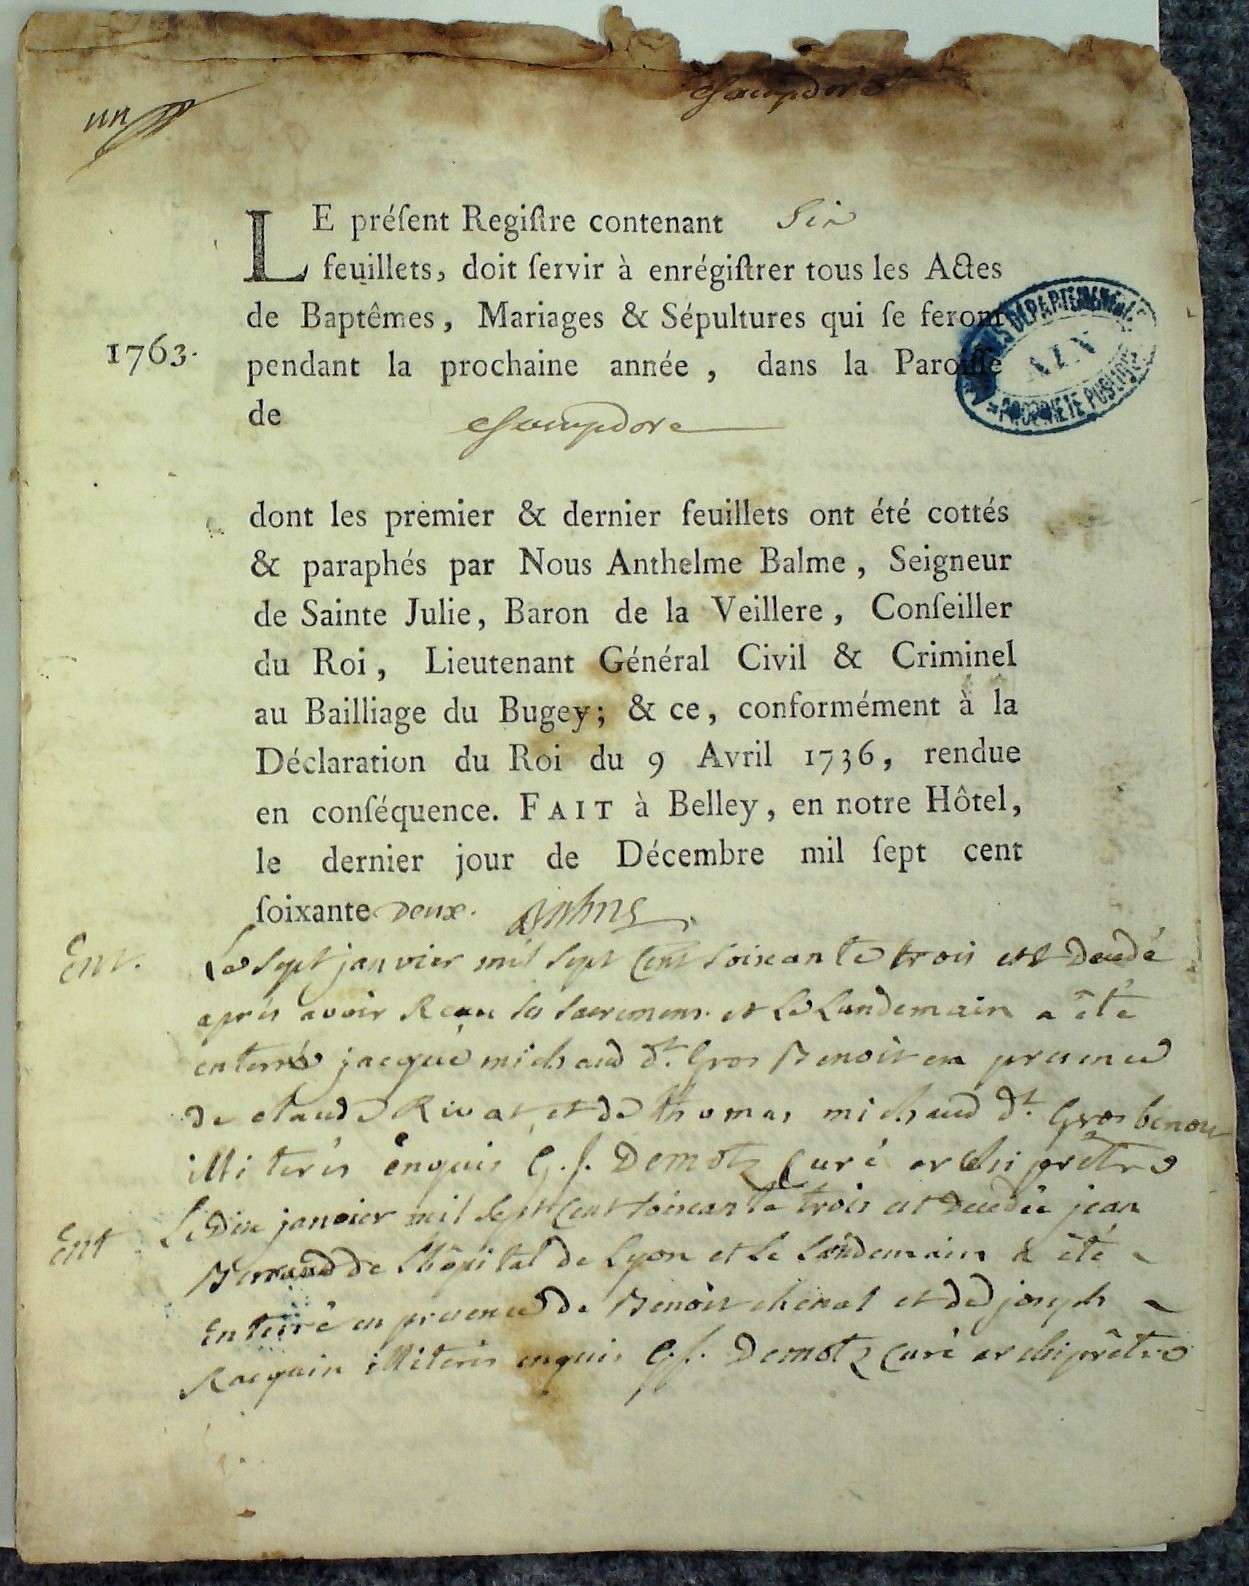 Champdore
un
LE préſent Regiſtre contenant Six
feuillets, doit ſervir à enrégiſtrer tous les Actes
de Baptêmes, Mariages & Sépultures qui ſe feront
1763.
pendant la prochaine année, dans la Paroiſſe
de Champdore
DÉPARTEMENTALES
AIN
PROPRIÉTÉ PUBLIQUE
dont les premier & dernier feuillets ont été cottés
& paraphés par Nous Anthelme Balme, Seigneur
de Sainte Julie, Baron de la Veillere, Conſeiller
du Roi, Lieutenant Général Civil & Criminel
au Bailliage du Bugey; & ce, conformément à la
Déclaration du Roi du 9 Avril 1736, rendue
en conſéquence. FAIT à Belley, en notre Hôtel,
le dernier jour de Décembre mil ſept cent
ſoixante deux.
Ent. Le sept janvier mil sept Cent soixante trois est decedé
après avoir Reçu les sacremens et Le Landemain a été
enterré jacque michaud dt. Gros Benoit en presence
de claude Rivat et de thomas michaud dt. Gros benoit
illiterés enquis G. J. Demotz Curé archiprêtre
Ent Le Dix janvier mil sept Cent soixante trois est decedé jean
de L'hôpital de Lyon et Le Landemain a été
Enterré en presence de Benoit chenal et de joseph
Racquin illiterés enquis G. J. Demotz Curé archiprêtre